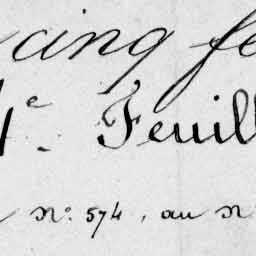 cinq fe
4e. Feuill
No. 574, au No